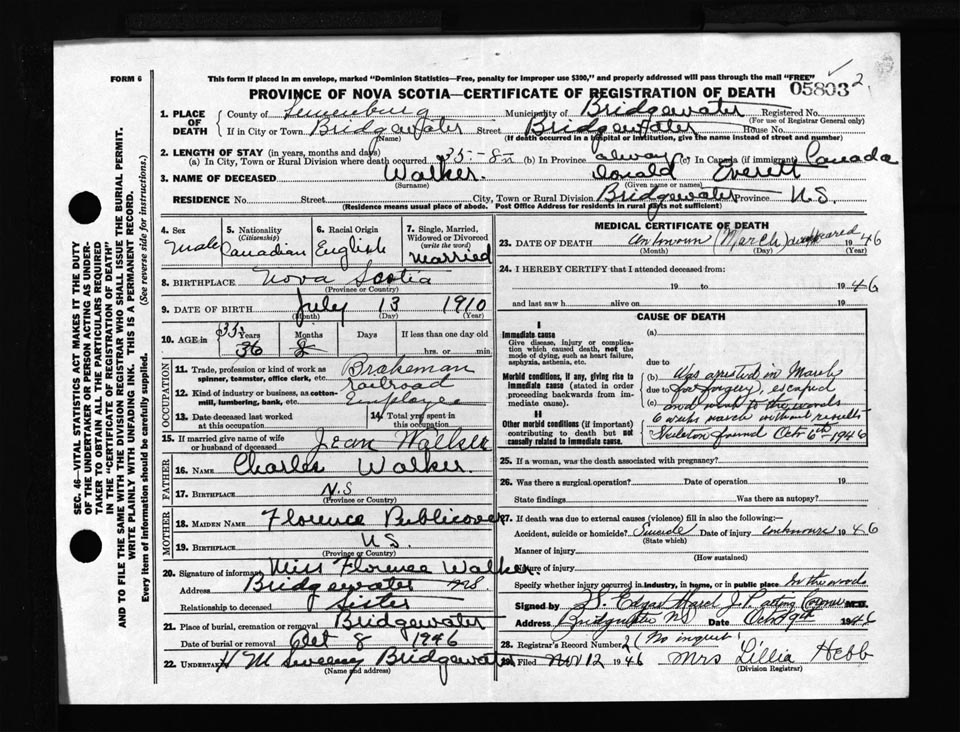 FORM 6
This form if placed in an envelope, marked "Dominion Statistics—Free, penalty for improper use $300," and properly addressed will pass through the mail "FREE"
PROVINCE OF NOVA SCOTIA—CERTIFICATE OF REGISTRATION OF DEATH
05803 2
1. PLACE OF DEATH
County of Lunenburg Municipality of Bridgewater Registered No.
(For use of Registrar General only)
If in City or Town Bridgewater Street Bridgewater House No.
(Name) (If death occurred in a hospital or institution, give the name instead of street and number)
2. LENGTH OF STAY (in years, months and days)
(a) In City, Town or Rural Division where death occurred 35-8m (b) In Province always (c) In Canada (if immigrant) Canada
3. NAME OF DECEASED Walker. Donald Everett
(Surname) (Given name or names)
RESIDENCE No. Street City, Town or Rural Division Bridgewater Province N.S.
(Residence means usual place of abode. Post Office Address for residents in rural parts not sufficient)
4. Sex Male
5. Nationality (Citizenship) Canadian
6. Racial Origin English
7. Single, Married, Widowed or Divorced (write the word) Married
8. BIRTHPLACE Nova Scotia
(Province or Country)
9. DATE OF BIRTH July 13 1910
(Month) (Day) (Year)
10. AGE in 35 Years Months Days If less than one day old
36 8 hrs. or min.
OCCUPATION
11. Trade, profession or kind of work as spinner, teamster, office clerk, etc. Brakeman
railroad
12. Kind of industry or business, as cotton-mill, lumbering, bank, etc. Employee
13. Date deceased last worked at this occupation
14. Total yrs. spent in this occupation
15. If married give name of wife or husband of deceased Jean Walker
FATHER
16. NAME Charles Walker.
17. BIRTHPLACE N.S
(Province or Country)
MOTHER
18. MAIDEN NAME Florence Publicover
19. BIRTHPLACE N.S.
(Province or Country)
20. Signature of informant Miss Florence Walker.
Address Bridgewater NS
Relationship to deceased Sister
21. Place of burial, cremation or removal Bridgewater
Date of burial or removal Oct 8 1946
22. UNDERTAKER H M Sweeny Bridgewater
MEDICAL CERTIFICATE OF DEATH
23. DATE OF DEATH unknown (March) disappeared 1946
(Month) (Day) (Year)
24. I HEREBY CERTIFY that I attended deceased from:
19 to 1946
and last saw h alive on 19
CAUSE OF DEATH
I
Immediate cause
Give disease, injury or complication which caused death, not the mode of dying, such as heart failure, asphyxia, asthenia, etc.
(a)
due to
Morbid conditions, if any, giving rise to immediate cause (stated in order proceeding backwards from immediate cause).
(b) Was arrested in March
due to for forgery, escaped
(c) and went to the woods
6 weeks search without results
II
Other morbid conditions (if important) contributing to death but not causally related to immediate cause.
Skeleton found Oct 6th 1946
25. If a woman, was the death associated with pregnancy?
26. Was there a surgical operation? Date of operation 19
State findings Was there an autopsy?
27. If death was due to external causes (violence) fill in also the following:—
Accident, suicide or homicide? Suicide Date of injury unknown 1946
(State which)
Manner of injury
(How sustained)
Nature of injury
Specify whether injury occurred in industry, in home, or in public place In the woods
Signed by Edgar J.P. acting Coroner M.D.
Address Bridgewater NS Date Oct 9th 1946
28. Registrar's Record Number 21 (No inquest)
29. Filed Nov 12 1946 Mrs Lillia Hebb
(Division Registrar)
SEC. 46—VITAL STATISTICS ACT MAKES IT THE DUTY
OF THE UNDERTAKER OR PERSON ACTING AS UNDER-
TAKER TO OBTAIN ALL THE PARTICULARS REQUIRED
IN THE "CERTIFICATE OF REGISTRATION OF DEATH"
AND TO FILE THE SAME WITH THE DIVISION REGISTRAR WHO SHALL ISSUE THE BURIAL PERMIT.
WRITE PLAINLY WITH UNFADING INK. THIS IS A PERMANENT RECORD.
Every item of information should be carefully supplied. (See reverse side for instructions.)